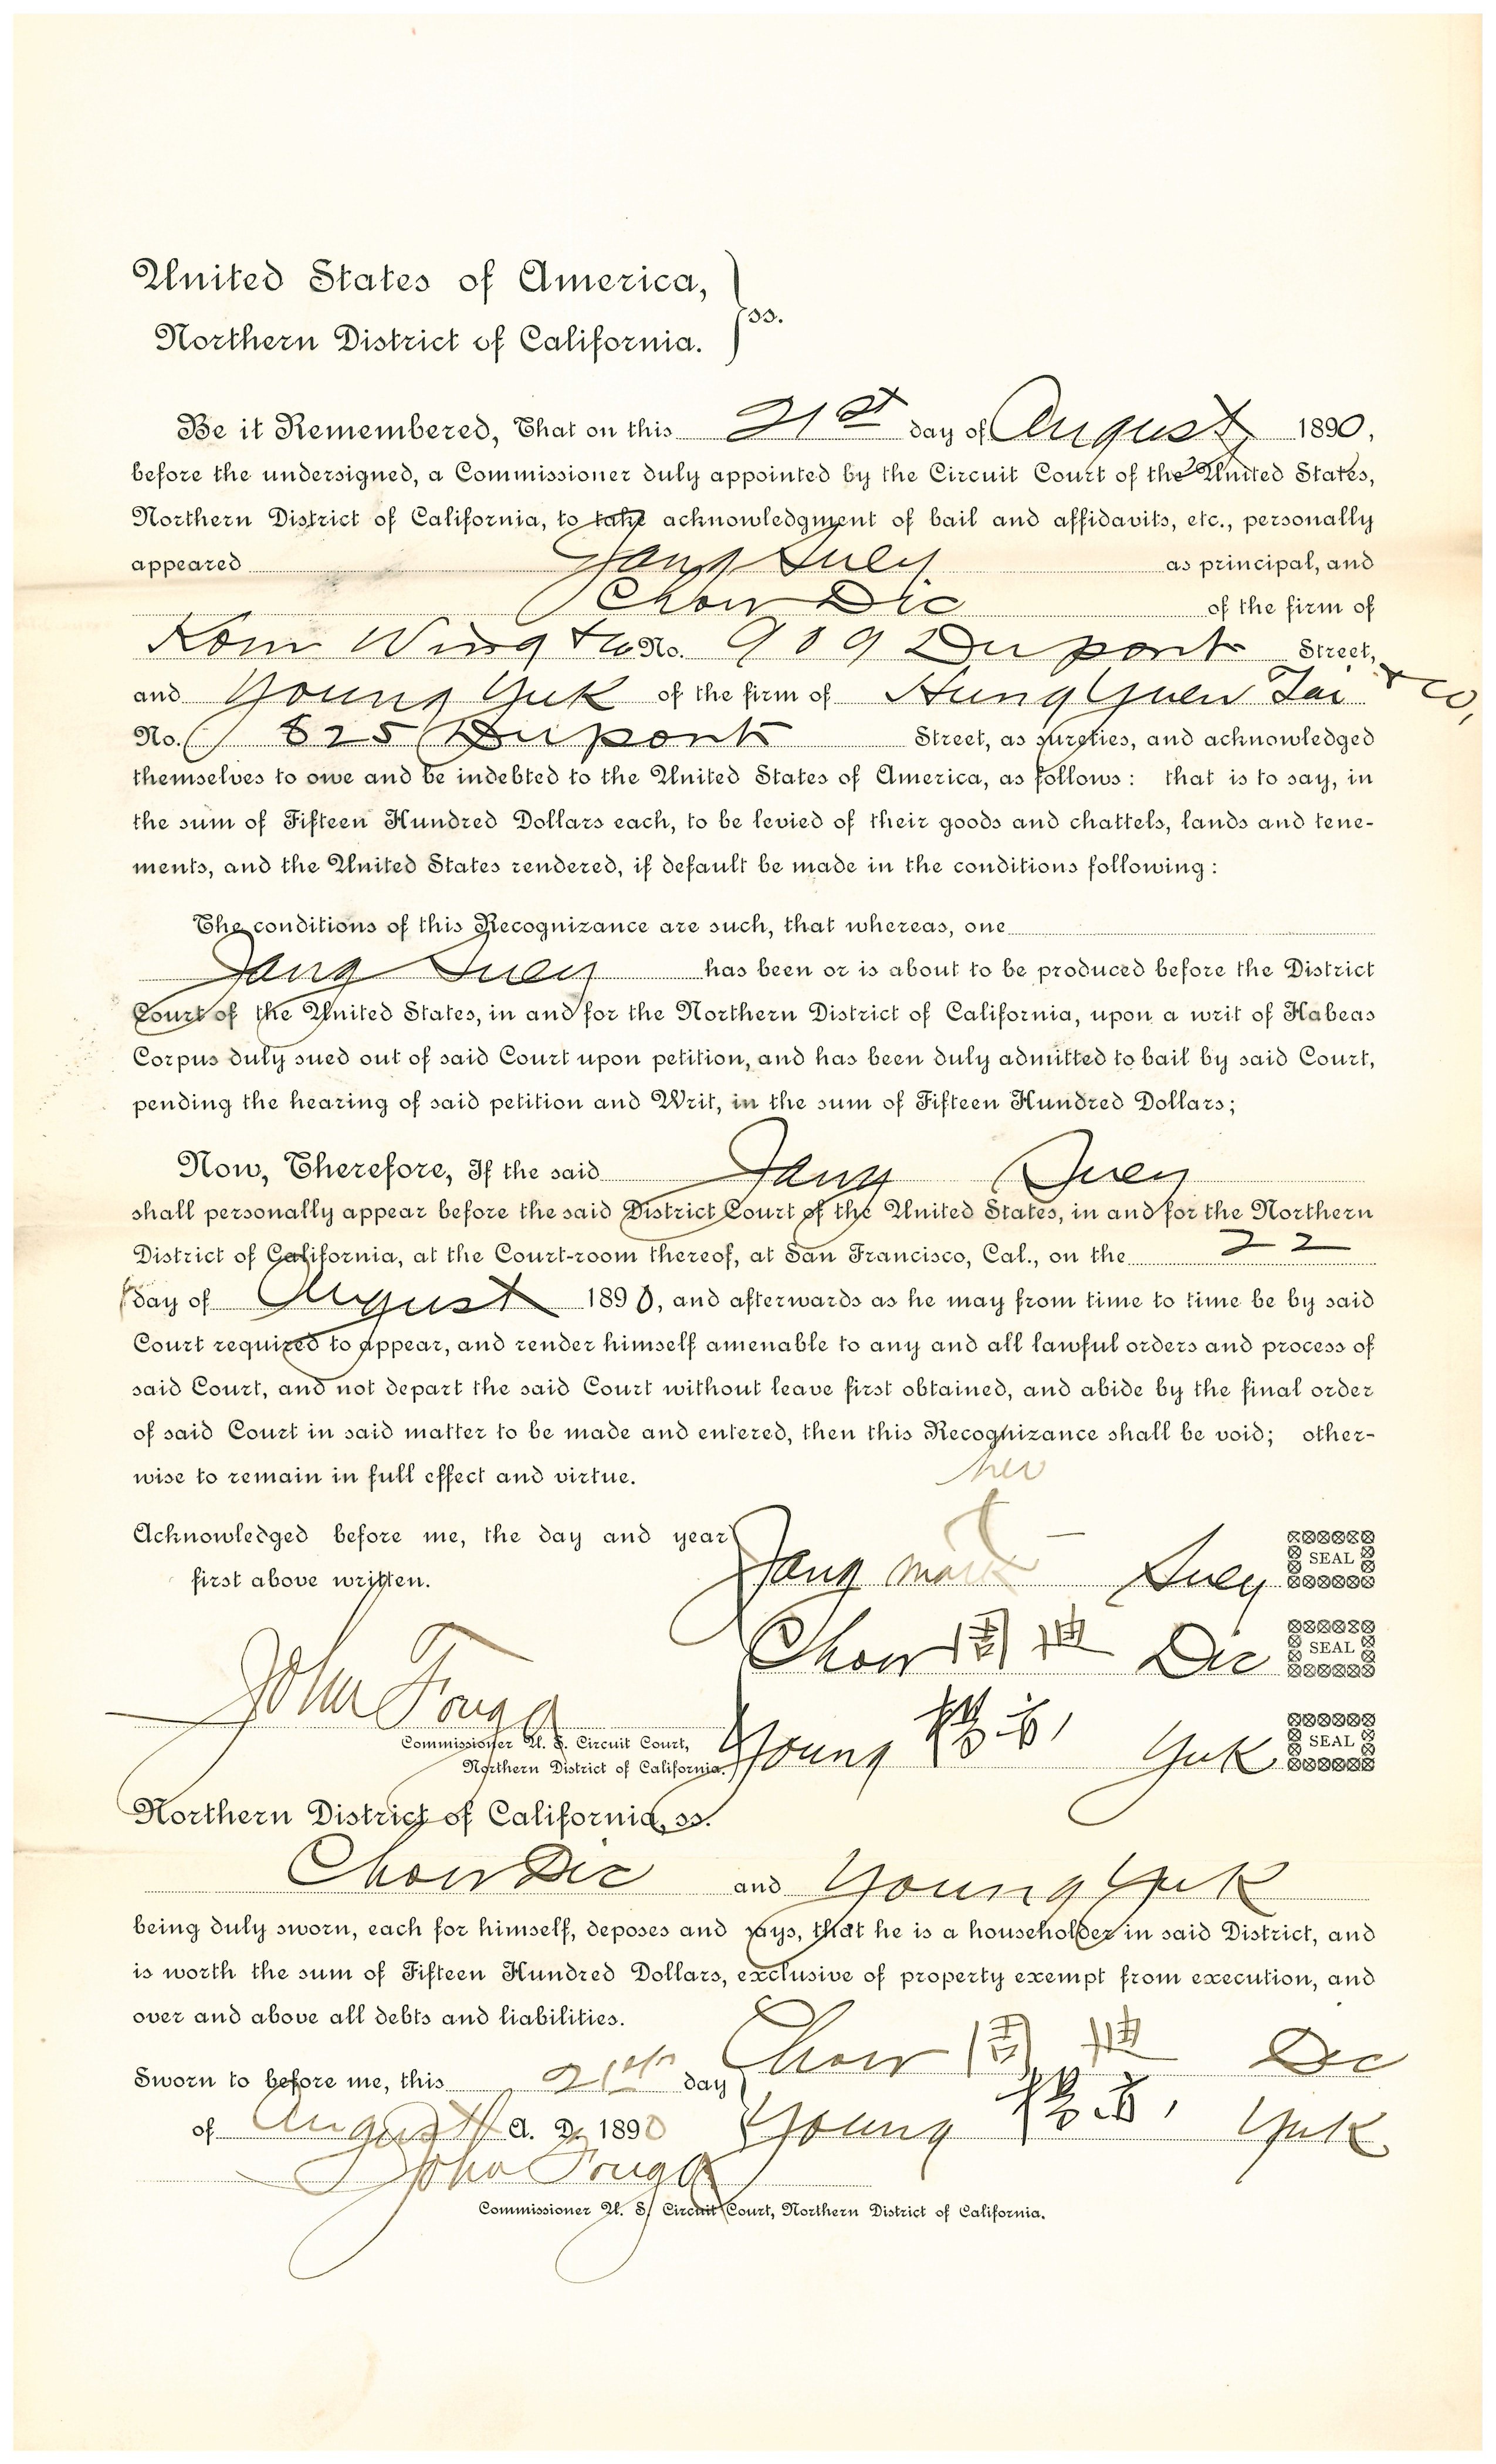 United States of America,
Northern District of California. } ss.
Be it Remembered, That on this 21st day of August 1890,
before the undersigned, a Commissioner duly appointed by the Circuit Court of the United States,
Northern District of California, to take acknowledgment of bail and affidavits, etc., personally
appeared Jang Suey as principal, and
Chow Dic of the firm of
Kom Wing & Co No. 909 Dupont Street,
and Young Yuk of the firm of Hung Yuen Tai & Co,
No. 825 Dupont Street, as sureties, and acknowledged
themselves to owe and be indebted to the United States of America, as follows: that is to say, in
the sum of Fifteen Hundred Dollars each, to be levied of their goods and chattels, lands and tene-
ments, and the United States rendered, if default be made in the conditions following:
The conditions of this Recognizance are such, that whereas, one
Jang Suey has been or is about to be produced before the District
Court of the United States, in and for the Northern District of California, upon a writ of Habeas
Corpus duly sued out of said Court upon petition, and has been duly admitted to bail by said Court,
pending the hearing of said petition and Writ, in the sum of Fifteen Hundred Dollars;
Now, Therefore, If the said Jang Suey
shall personally appear before the said District Court of the United States, in and for the Northern
District of California, at the Court-room thereof, at San Francisco, Cal., on the 22
day of August 1890, and afterwards as he may from time to time be by said
Court required to appear, and render himself amenable to any and all lawful orders and process of
said Court, and not depart the said Court without leave first obtained, and abide by the final order
of said Court in said matter to be made and entered, then this Recognizance shall be void; other-
wise to remain in full effect and virtue.
her
Acknowledged before me, the day and year
first above written. Jang mark Suey SEAL
Chow 周迪 Dic SEAL
John Fouga
Commissioner U. S. Circuit Court,
Northern District of California. Young 楊 Yuk SEAL
Northern District of California, ss.
Chow Dic and Young Yuk
being duly sworn, each for himself, deposes and says, that he is a householder in said District, and
is worth the sum of Fifteen Hundred Dollars, exclusive of property exempt from execution, and
over and above all debts and liabilities.
Chow 周迪 Dic
Sworn to before me, this 21st day
of August A. D. 1890 Young 楊 Yuk
John Fouga
Commissioner U. S. Circuit Court, Northern District of California.